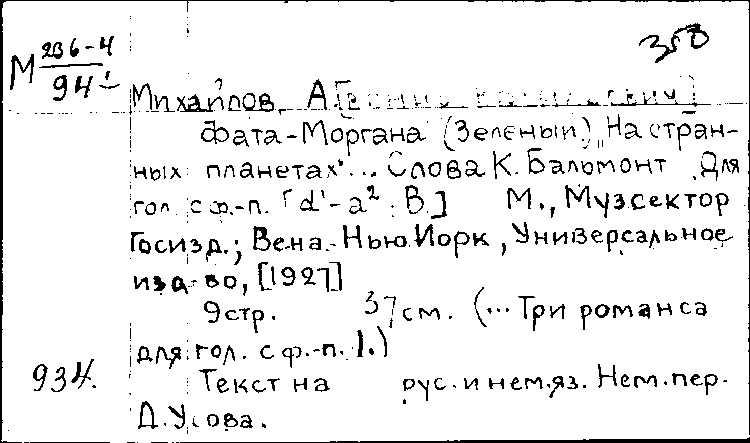 350
М 236-4
94
Михайлов, А[
Фата-Моргана (Зеленый) „На стран-
ных планетах"... Слова К. Бальмонт Для
гол. с ф.-п. [d¹-a² : B.] М., Музсектор
Госизд.; Вена-Нью Йорк, Универсальное
изд-во, [1927]
9 стр. 37 см. (... Три романса
для гол. с ф.-п. 1.)
934.
Текст на рус. и нем. яз. Нем. пер.
Д. Усова.